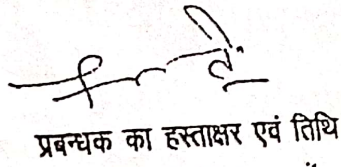 प्रबन्धक का हस्ताक्षर एवं तिथि